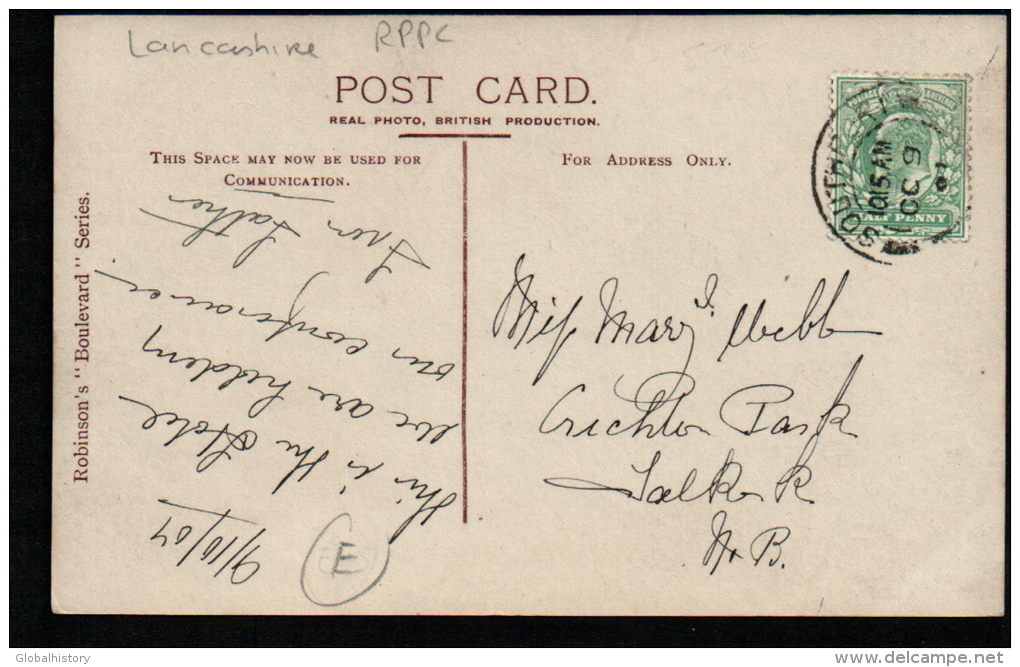 Lancashire RPPC
POST CARD.
REAL PHOTO, BRITISH PRODUCTION.
THIS SPACE MAY NOW BE USED FOR
COMMUNICATION.
FOR ADDRESS ONLY.
Robinson's "Boulevard" Series.
9/10/07
This is the Hotel
we are holding
our conference in
From Father
E
Miss Mary J. Webb
Crichton Park
Falkirk
N. B.
SOUTHPORT
1015 AM
OC 9
07
HALF PENNY
Globalhistory